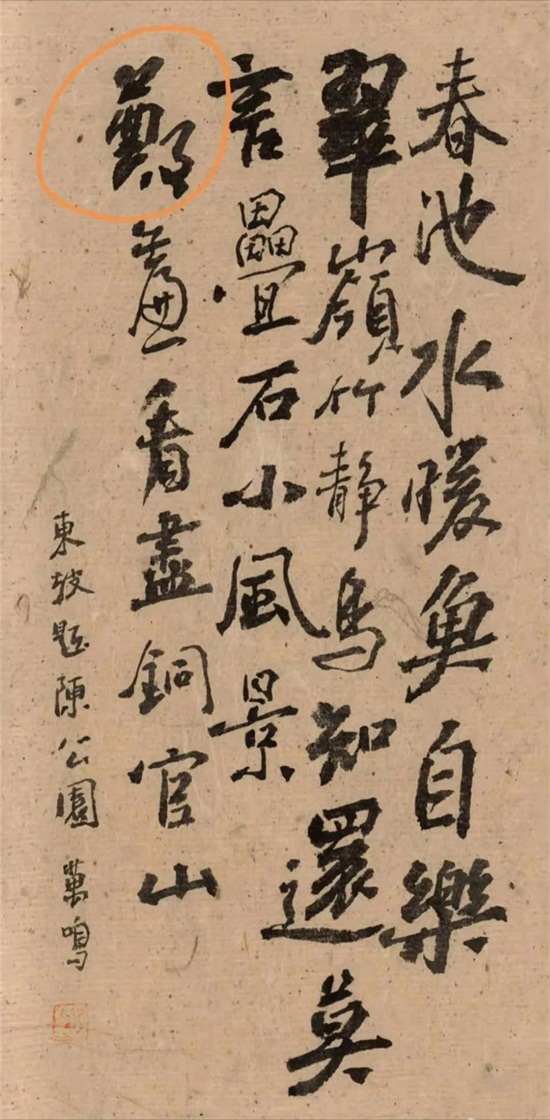 春池水暖魚自樂
翠嶺竹静鳥知還莫
言疊石小風景
鄭簾看盡銅官山
東坡題陳公園 萬鳴